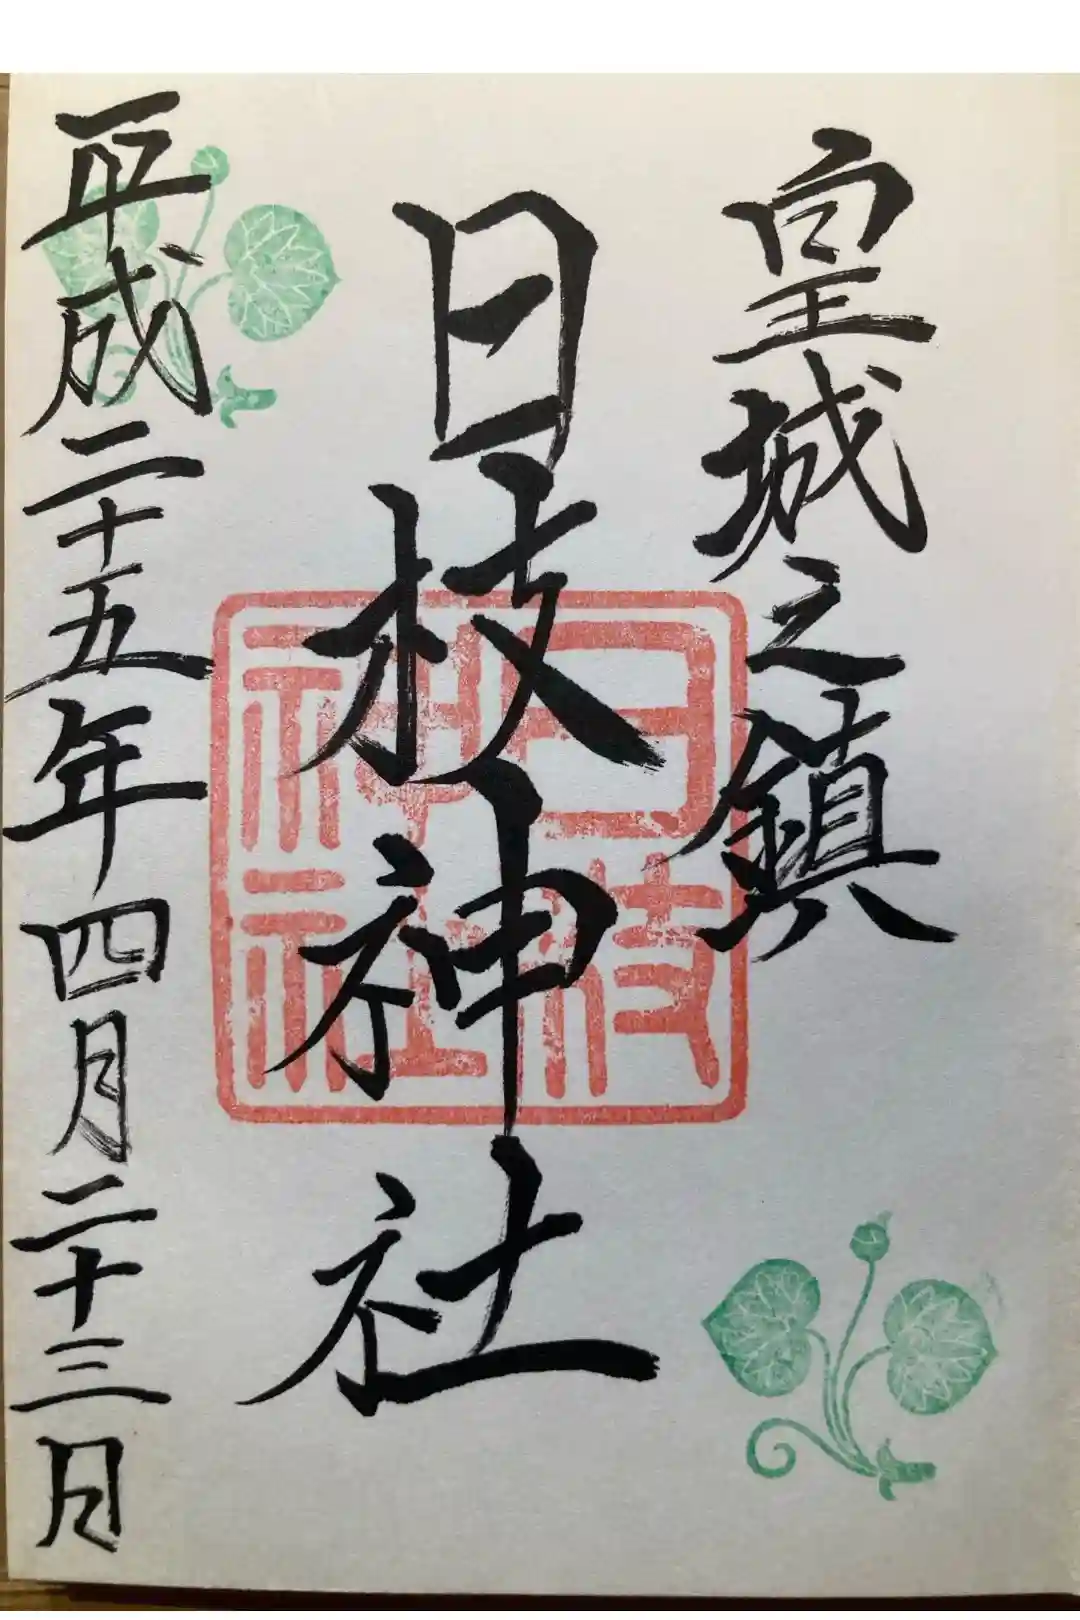 皇城之鎮
日枝神社
日枝神社
平成二十五年四月二十三日